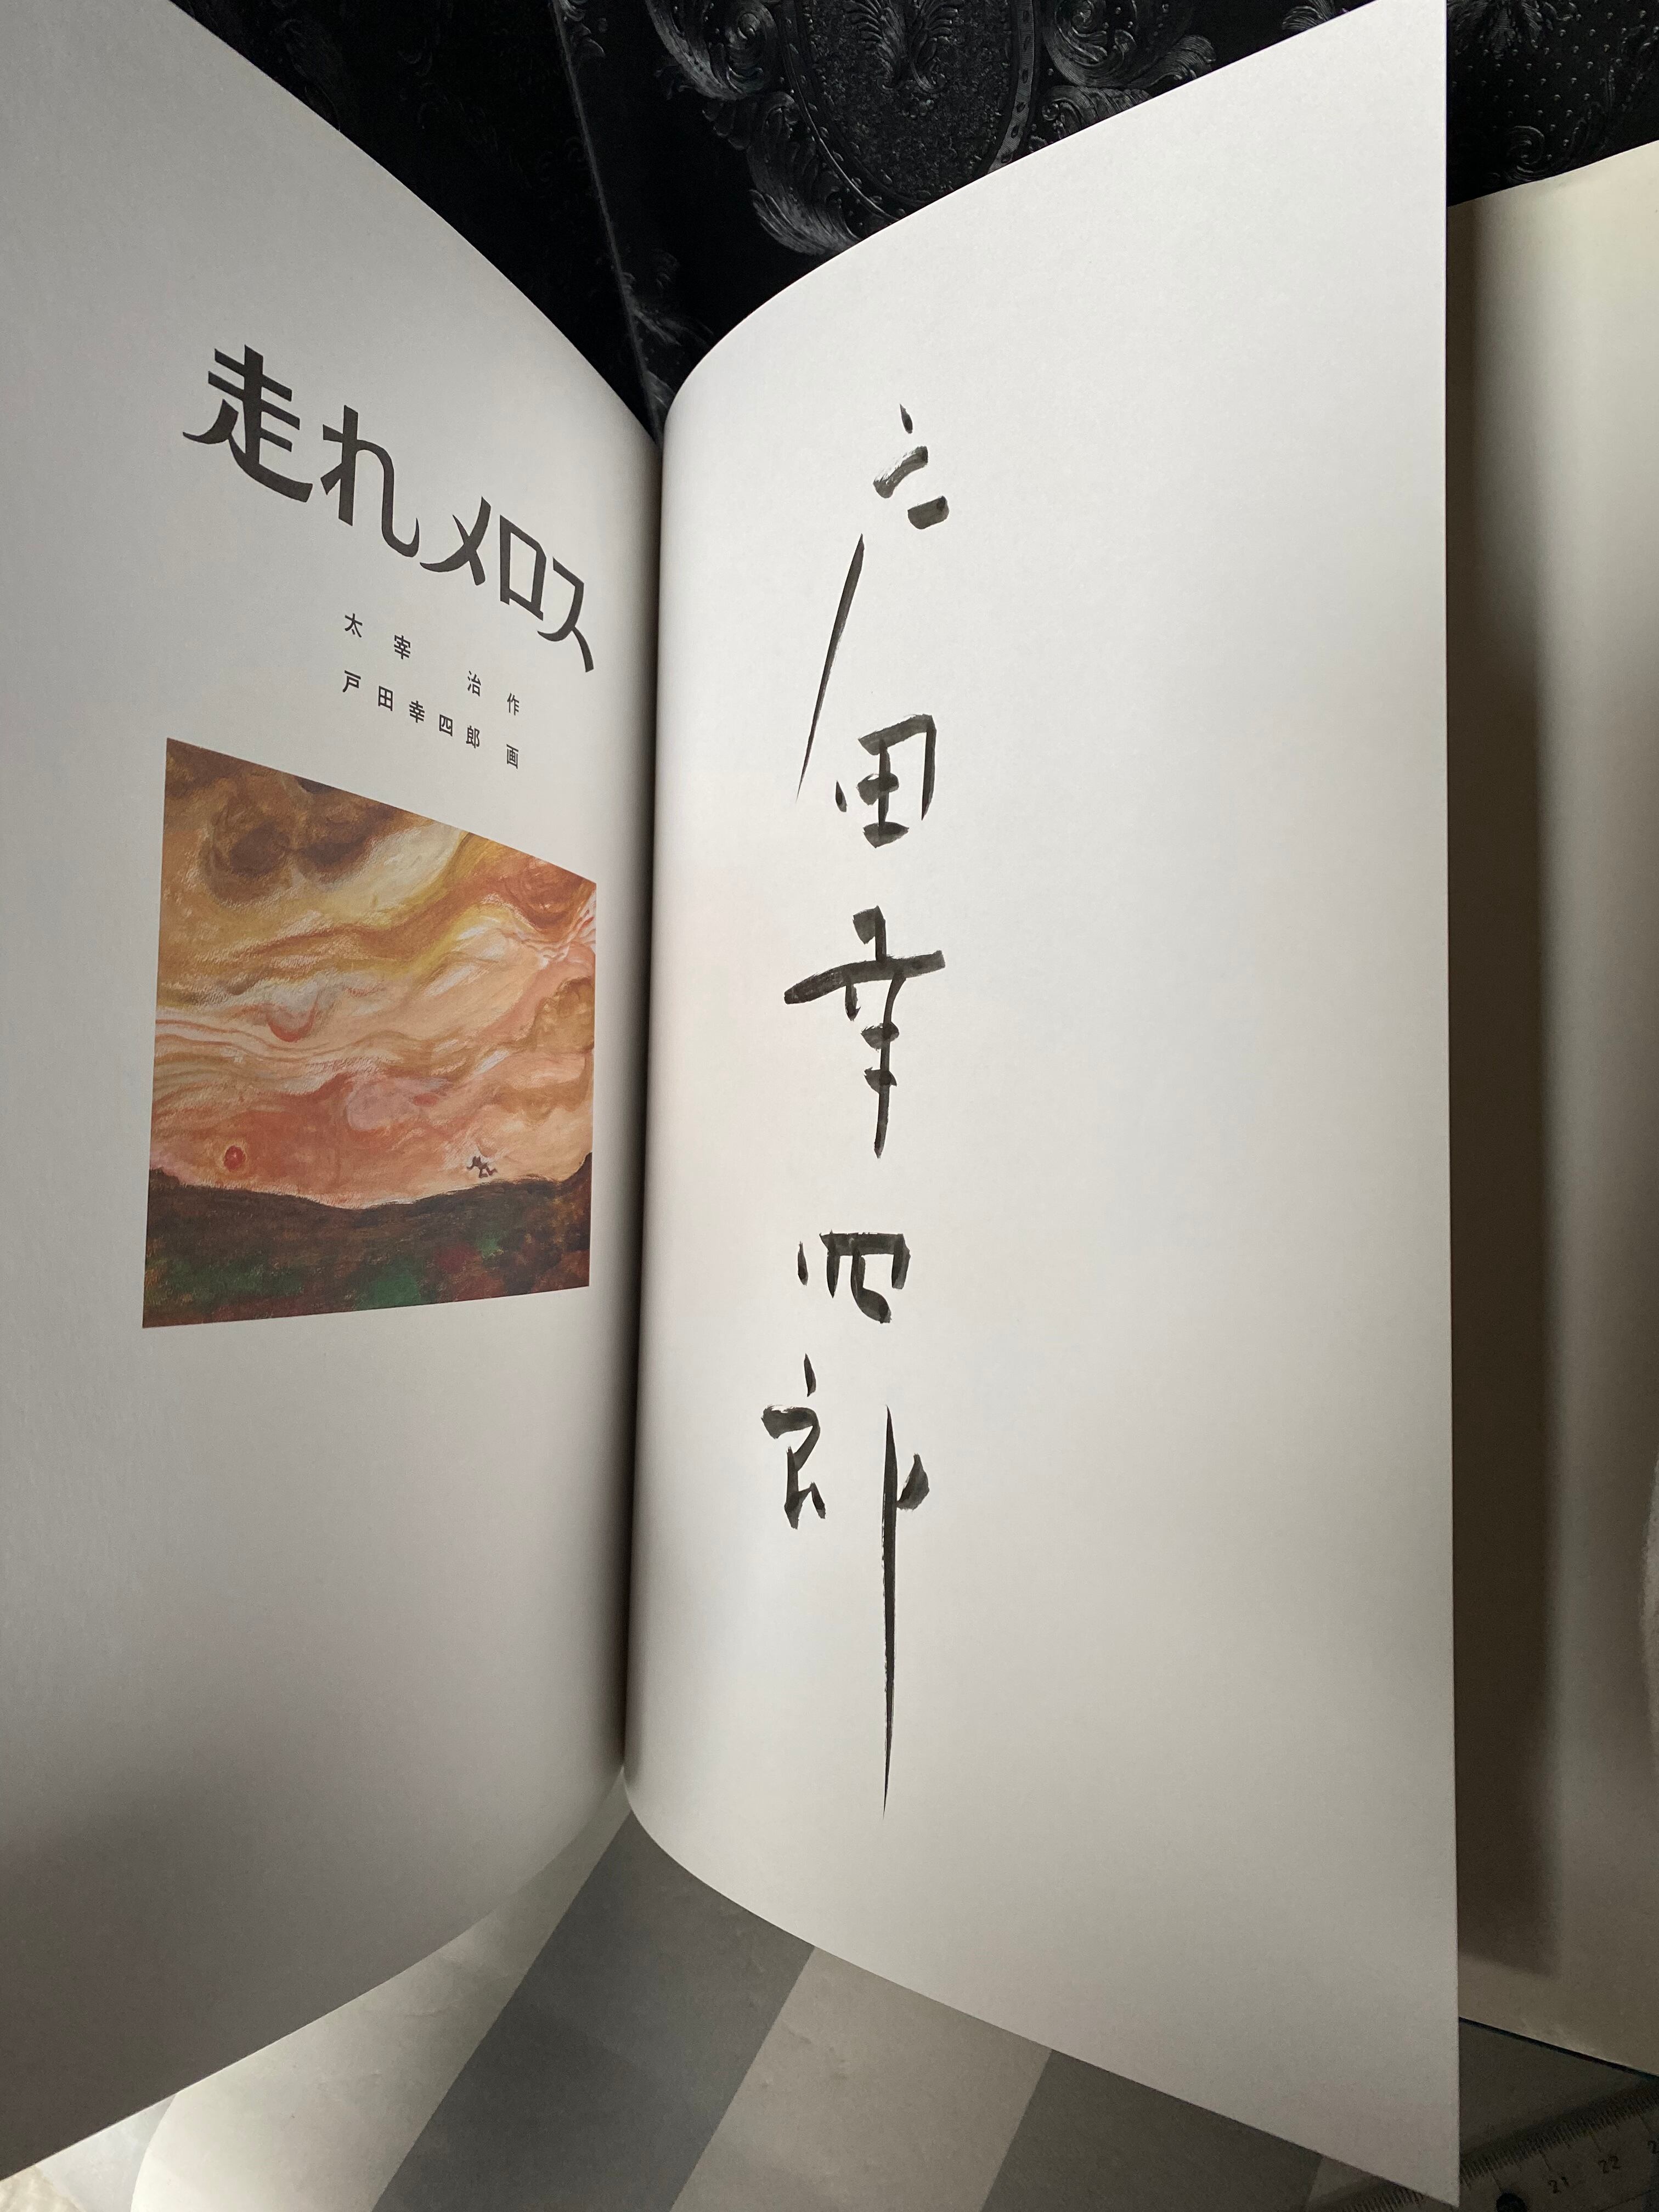 走れメロス
太宰 治 作
戸田幸四郎 画
戸田幸四郎
21 22